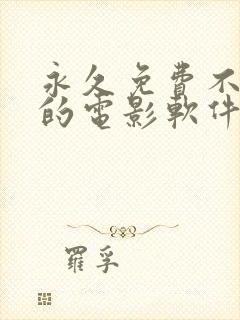 永久免費不
的電影軟件
羅孚